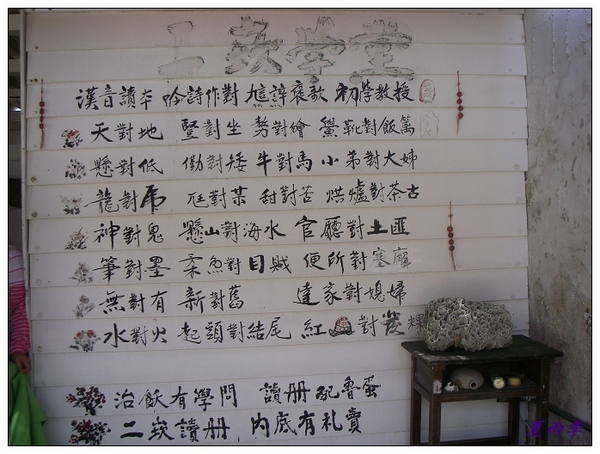 二崁學堂
漢音讀本 吟詩作對 褒歌 初學教授
天對地 豎對坐 對繪 鱟靴對飯篱
懸對低 對矮 牛對馬 小弟對大姊
龍對虎 尪對某 甜對苦 烘爐對茶古
神對鬼 懸山對海水 官廳對土匪
筆對墨 柔魚對目賊 便所對塞廟
無對有 新對舊 達家對媳婦
水對火 起頭對結尾 紅對粿
治飫有學問 讀冊配魯蛋
二崁讀冊 內底有礼賣